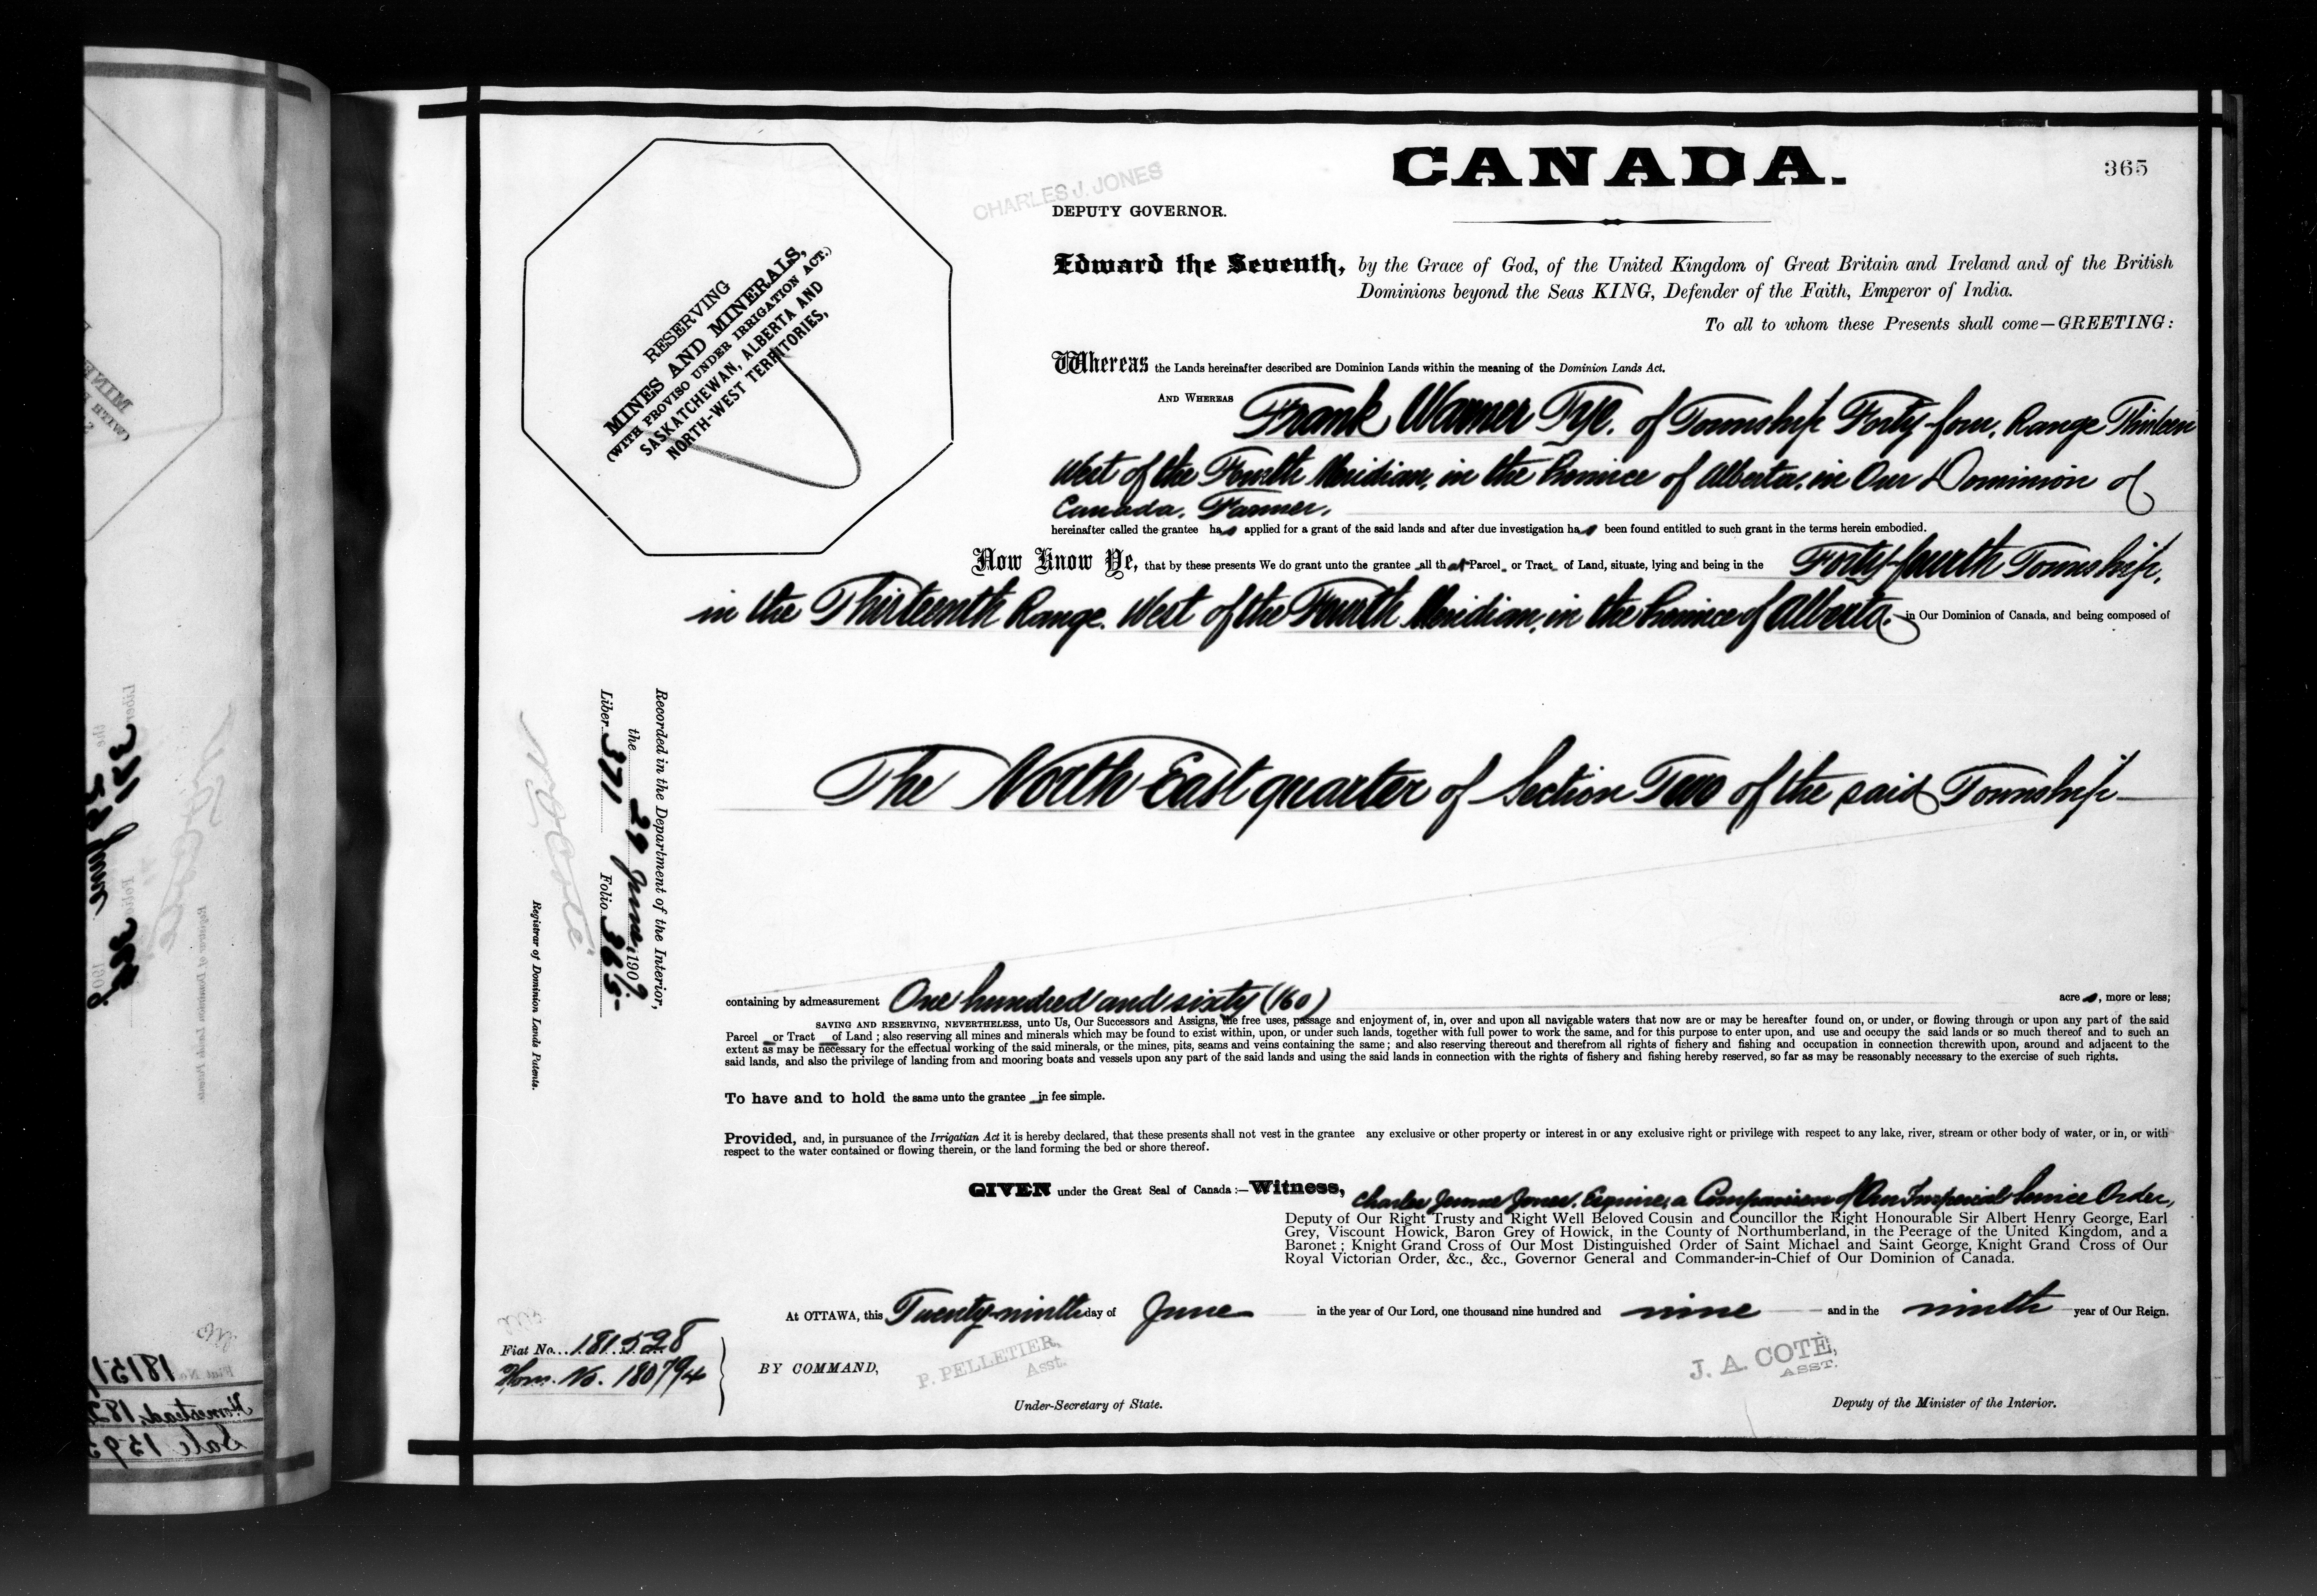 CANADA.
365
CHARLES J. JONES
DEPUTY GOVERNOR.
RESERVING
MINES AND MINERALS,
(WITH PROVISO UNDER IRRIGATION ACT.)
SASKATCHEWAN, ALBERTA AND
NORTH-WEST TERRITORIES,
Edward the Seventh, by the Grace of God, of the United Kingdom of Great Britain and Ireland and of the British
Dominions beyond the Seas KING, Defender of the Faith, Emperor of India.
To all to whom these Presents shall come—GREETING:
Whereas the Lands hereinafter described are Dominion Lands within the meaning of the Dominion Lands Act.
AND WHEREAS Frank Warner Tye, of Township Forty-four, Range Thirteen
West of the Fourth Meridian, in the Province of Alberta, in Our Dominion of
Canada, Farmer,
hereinafter called the grantee has applied for a grant of the said lands and after due investigation has been found entitled to such grant in the terms herein embodied.
Now Know Ye, that by these presents We do grant unto the grantee all that Parcel or Tract of Land, situate, lying and being in the Forty-fourth Township,
in the Thirteenth Range, West of the Fourth Meridian, in the Province of Alberta, in Our Dominion of Canada, and being composed of
The North East quarter of Section Two of the said Township
Recorded in the Department of the Interior,
the 29 June, 1909
Liber 371 Folio 365
N.O. Coté
Registrar of Dominion Lands Patents.
containing by admeasurement One hundred and sixty (160) acres, more or less;
SAVING AND RESERVING, NEVERTHELESS, unto Us, Our Successors and Assigns, the free uses, passage and enjoyment of, in, over and upon all navigable waters that now are or may be hereafter found on, or under, or flowing through or upon any part of the said
Parcel or Tract of Land; also reserving all mines and minerals which may be found to exist within, upon, or under such lands, together with full power to work the same, and for this purpose to enter upon, and use and occupy the said lands or so much thereof and to such an
extent as may be necessary for the effectual working of the said minerals, or the mines, pits, seams and veins containing the same; and also reserving thereout and therefrom all rights of fishery and fishing and occupation in connection therewith upon, around and adjacent to the
said lands, and also the privilege of landing from and mooring boats and vessels upon any part of the said lands and using the said lands in connection with the rights of fishery and fishing hereby reserved, so far as may be reasonably necessary to the exercise of such rights.
To have and to hold the same unto the grantee in fee simple.
Provided, and, in pursuance of the Irrigation Act it is hereby declared, that these presents shall not vest in the grantee any exclusive or other property or interest in or any exclusive right or privilege with respect to any lake, river, stream or other body of water, or in, or with
respect to the water contained or flowing therein, or the land forming the bed or shore thereof.
GIVEN under the Great Seal of Canada:—Witness, Charles Jones, Esquire, a Companion of Our Imperial Service Order,
Deputy of Our Right Trusty and Right Well Beloved Cousin and Councillor the Right Honourable Sir Albert Henry George, Earl
Grey, Viscount Howick, Baron Grey of Howick, in the County of Northumberland, in the Peerage of the United Kingdom, and a
Baronet; Knight Grand Cross of Our Most Distinguished Order of Saint Michael and Saint George, Knight Grand Cross of Our
Royal Victorian Order, &c., &c., Governor General and Commander-in-Chief of Our Dominion of Canada.
At OTTAWA, this Twenty-ninth day of June in the year of Our Lord, one thousand nine hundred and nine and in the ninth year of Our Reign.
Fiat No. 181528
Hom. No. 180794
BY COMMAND,
P. PELLETIER,
Asst.
Under-Secretary of State.
J. A. COTÉ,
ASST.
Deputy of the Minister of the Interior.